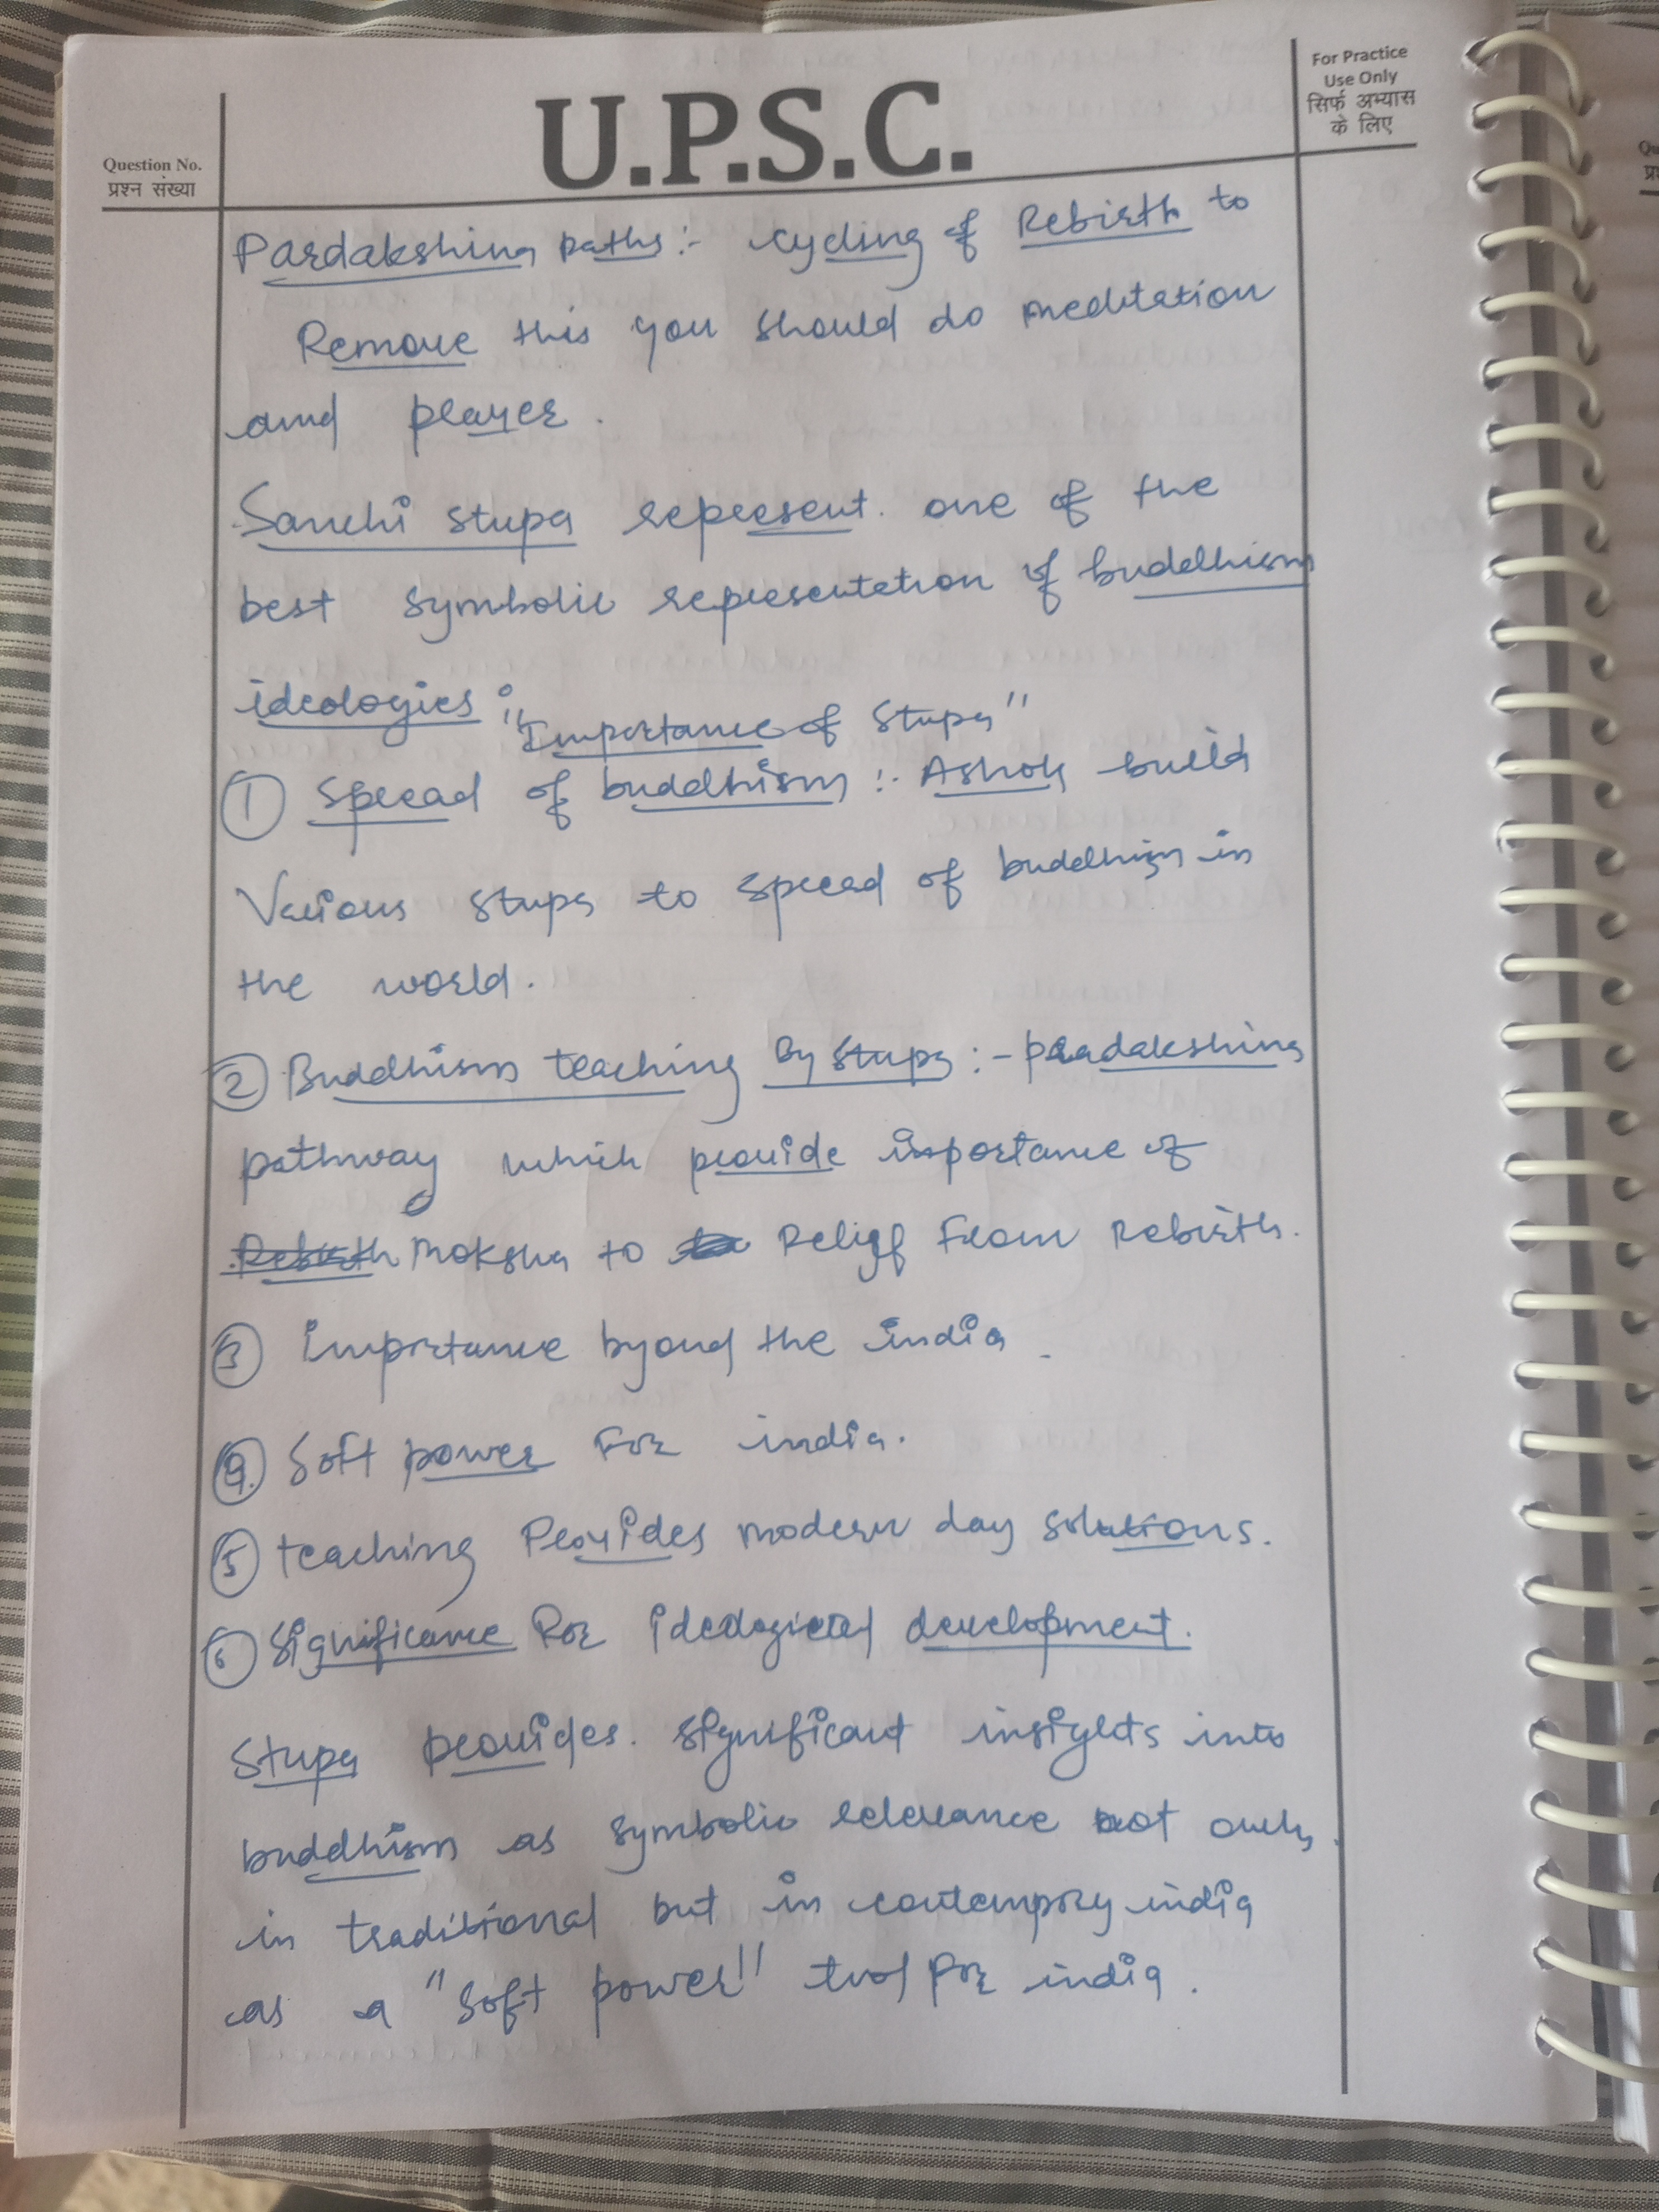 For Practice
Use Only
सिर्फ अभ्यास
के लिए
U.P.S.C.
Question No.
प्रश्न संख्या
Pardakshina paths :- cycling of Rebirth to
Remove this you should do meditation
and prayer.
Sanchi stupa represent. one of the
best symbolic representation of buddhism
ideologies :
"Importance of Stupa"
① Spread of buddhism :- Ashok build
Various stupa to spread of buddhism in
the world.
② Buddhism teaching By stupa :- pradakshina
pathway which provide importance of
Rebirth moksha to Relief From Rebirth.
③ importance byond the india.
④ Soft power For india.
⑤ teaching Provides modern day solutions.
⑥ Significance For ideological development.
Stupa provides. significant insights into
buddhism as symbolic relevance not only
in traditional but in contempory india
as a "Soft power" tool for india.